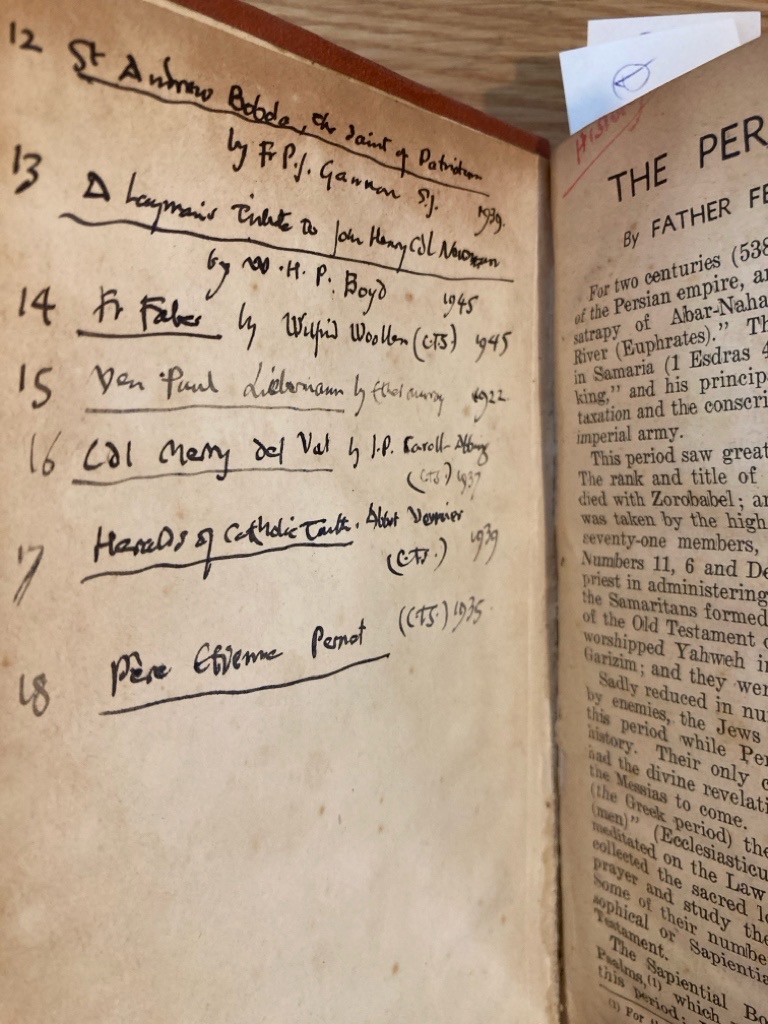 12 St Andrew Bobola, the Saint of Patriotism
by Fr P.J. Gannon S.J. 1939.
13 A Layman's Tribute to John Henry Cdl Newman
by W.H.P. Boyd 1945
14 Fr Faber by Wilfrid Woollen (CTS) 1945
15 Ven Paul Liebermann by Ethel Murray 1922
16 Cdl Merry del Val by J.P. Caroll-
(CTS) 1937
17 Heralds of Catholic Truth. Abbot Vernier
(CTS.) 1939
18 Père Etienne Pernet (CTS) 1935
History
THE PER
By FATHER FE
For two centuries (538
of the Persian empire, an
satrapy of Abar-Naha
River (Euphrates)." Th
in Samaria (1 Esdras 4
king," and his princip
taxation and the conscri
imperial army.
This period saw great
The rank and title of
died with Zorobabel; an
was taken by the high
seventy-one members,
Numbers 11, 6 and De
priest in administering
the Samaritans formed
of the Old Testament c
worshipped Yahweh in
Garizim; and they wer
Sadly reduced in nu
by enemies, the Jews
this period while Per
history. Their only c
had the divine revelati
the Messias to come.
(the Greek period) the
(men)" (Ecclesiasticu
meditated on the Law
collected the sacred lo
prayer and study the
Some of their numbe
sophical or Sapientia
Testament.
The Sapiential Bo
Psalms,(1) which
this period;
(1) For th